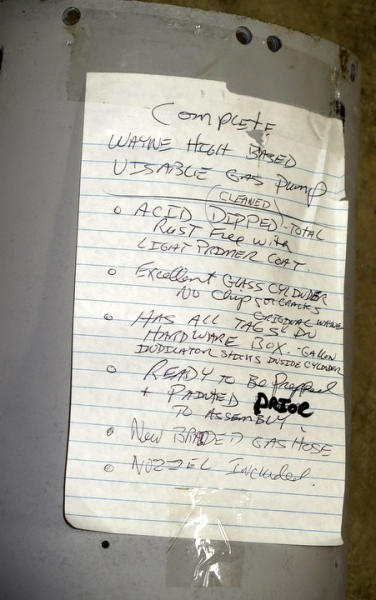 Complete
WAYNE HIGH BASED
VISABLE GAS Pump
(CLEANED)
o ACID DIPPED - TOTAL
RUST FREE with
LIGHT PRIMER COAT.
o Excellent GLASS CYLINDER
NO Chips or CRACKS
ORIGINAL WAYNE
o HAS ALL TAGS &
HARDWARE BOX. GALLON
INDICATOR STICKS INSIDE CYLINDER
o READY TO BE Prepped
+ PAINTED PRIOR
TO ASSEMBLY.
o New BRAIDED GAS HOSE
o NOZZEL INCLUDED.